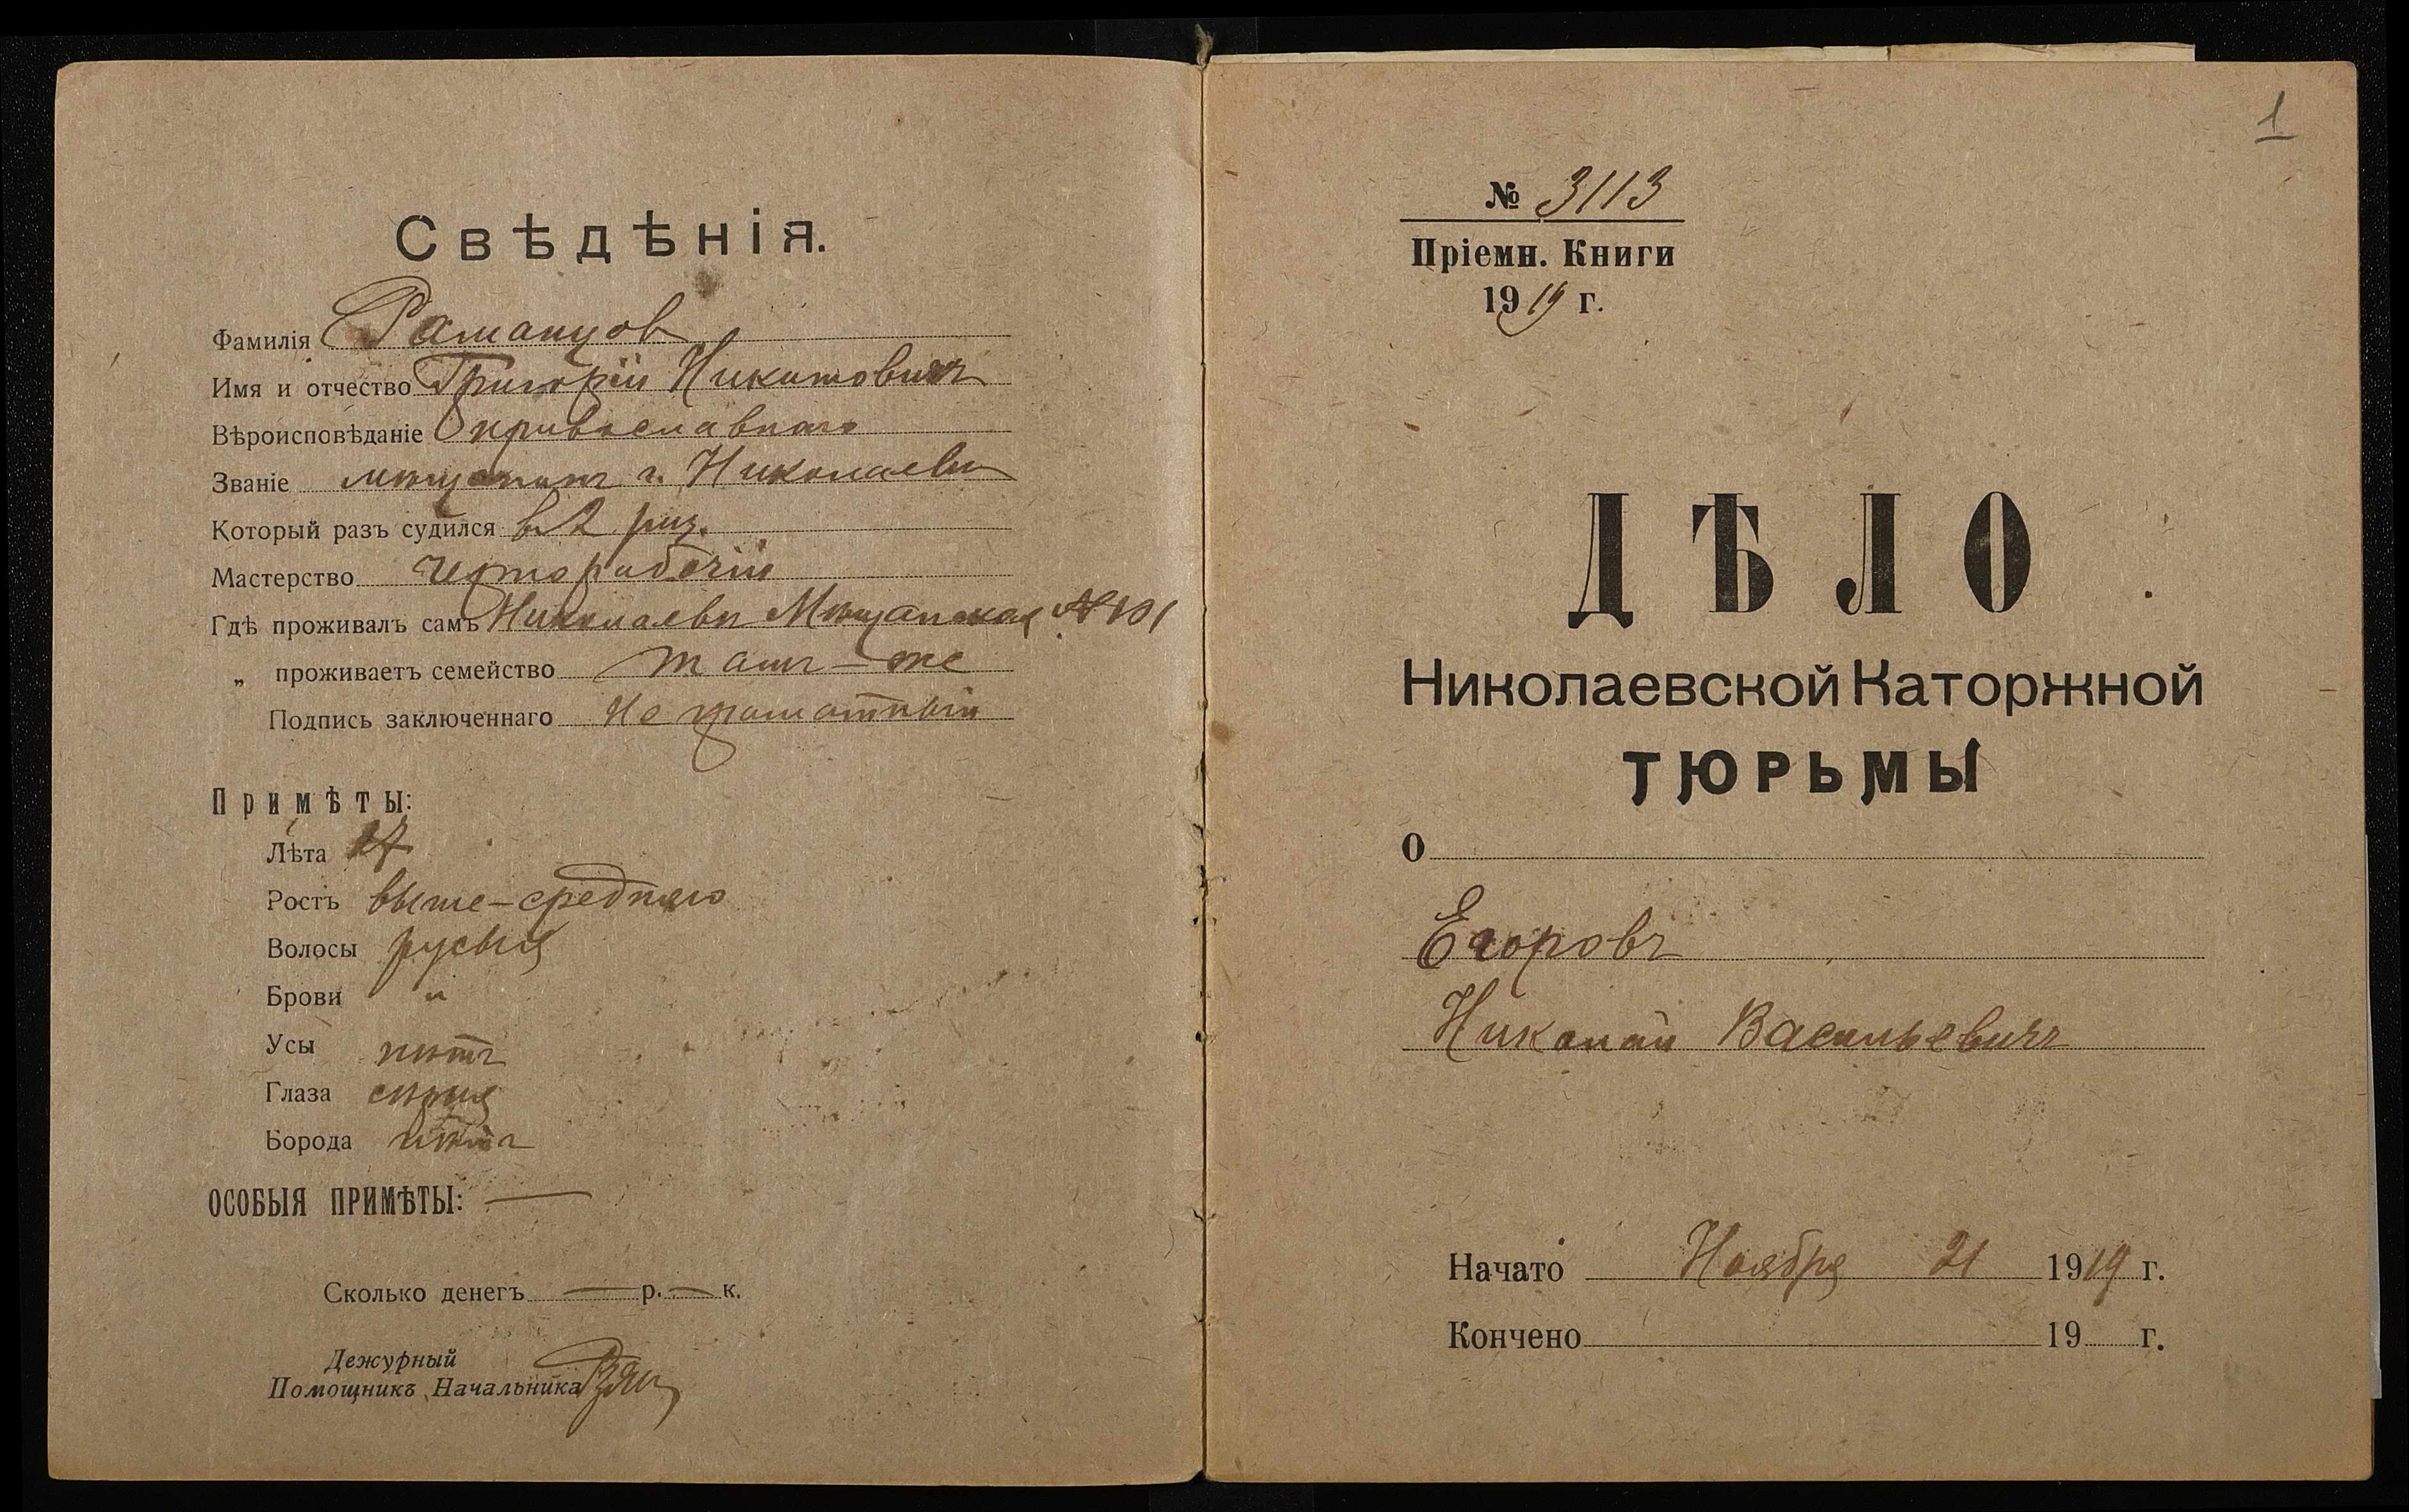 Свѣдѣнія.
Фамилія Раманцов
Имя и отчество Григорій Никитовичъ
Вѣроисповѣданіе православнаго
Званіе мѣщанинъ г. Николаева
Который разъ судился в 2 раз.
Мастерство чернорабочій
Гдѣ проживалъ самъ Николаевъ Мѣщанская № 101
„ проживаетъ семейство тамъ-же
Подпись заключеннаго не грамотный
Примѣты:
Лѣта 17
Ростъ выше-средняго
Волосы русыя
Брови "
Усы нѣтъ
Глаза сѣрыя
Борода нѣтъ
ОСОБЫЯ ПРИМѢТЫ: —
Сколько денегъ — р. — к.
Дежурный
Помощникъ Начальника
1
№ 3113
Пріемн. Книги
1919 г.
ДѢЛО
Николаевской Каторжной
ТЮРЬМЫ
О
Егоровъ
Николай Васильевичъ
Начато Ноября 21 1919 г.
Кончено 19 г.